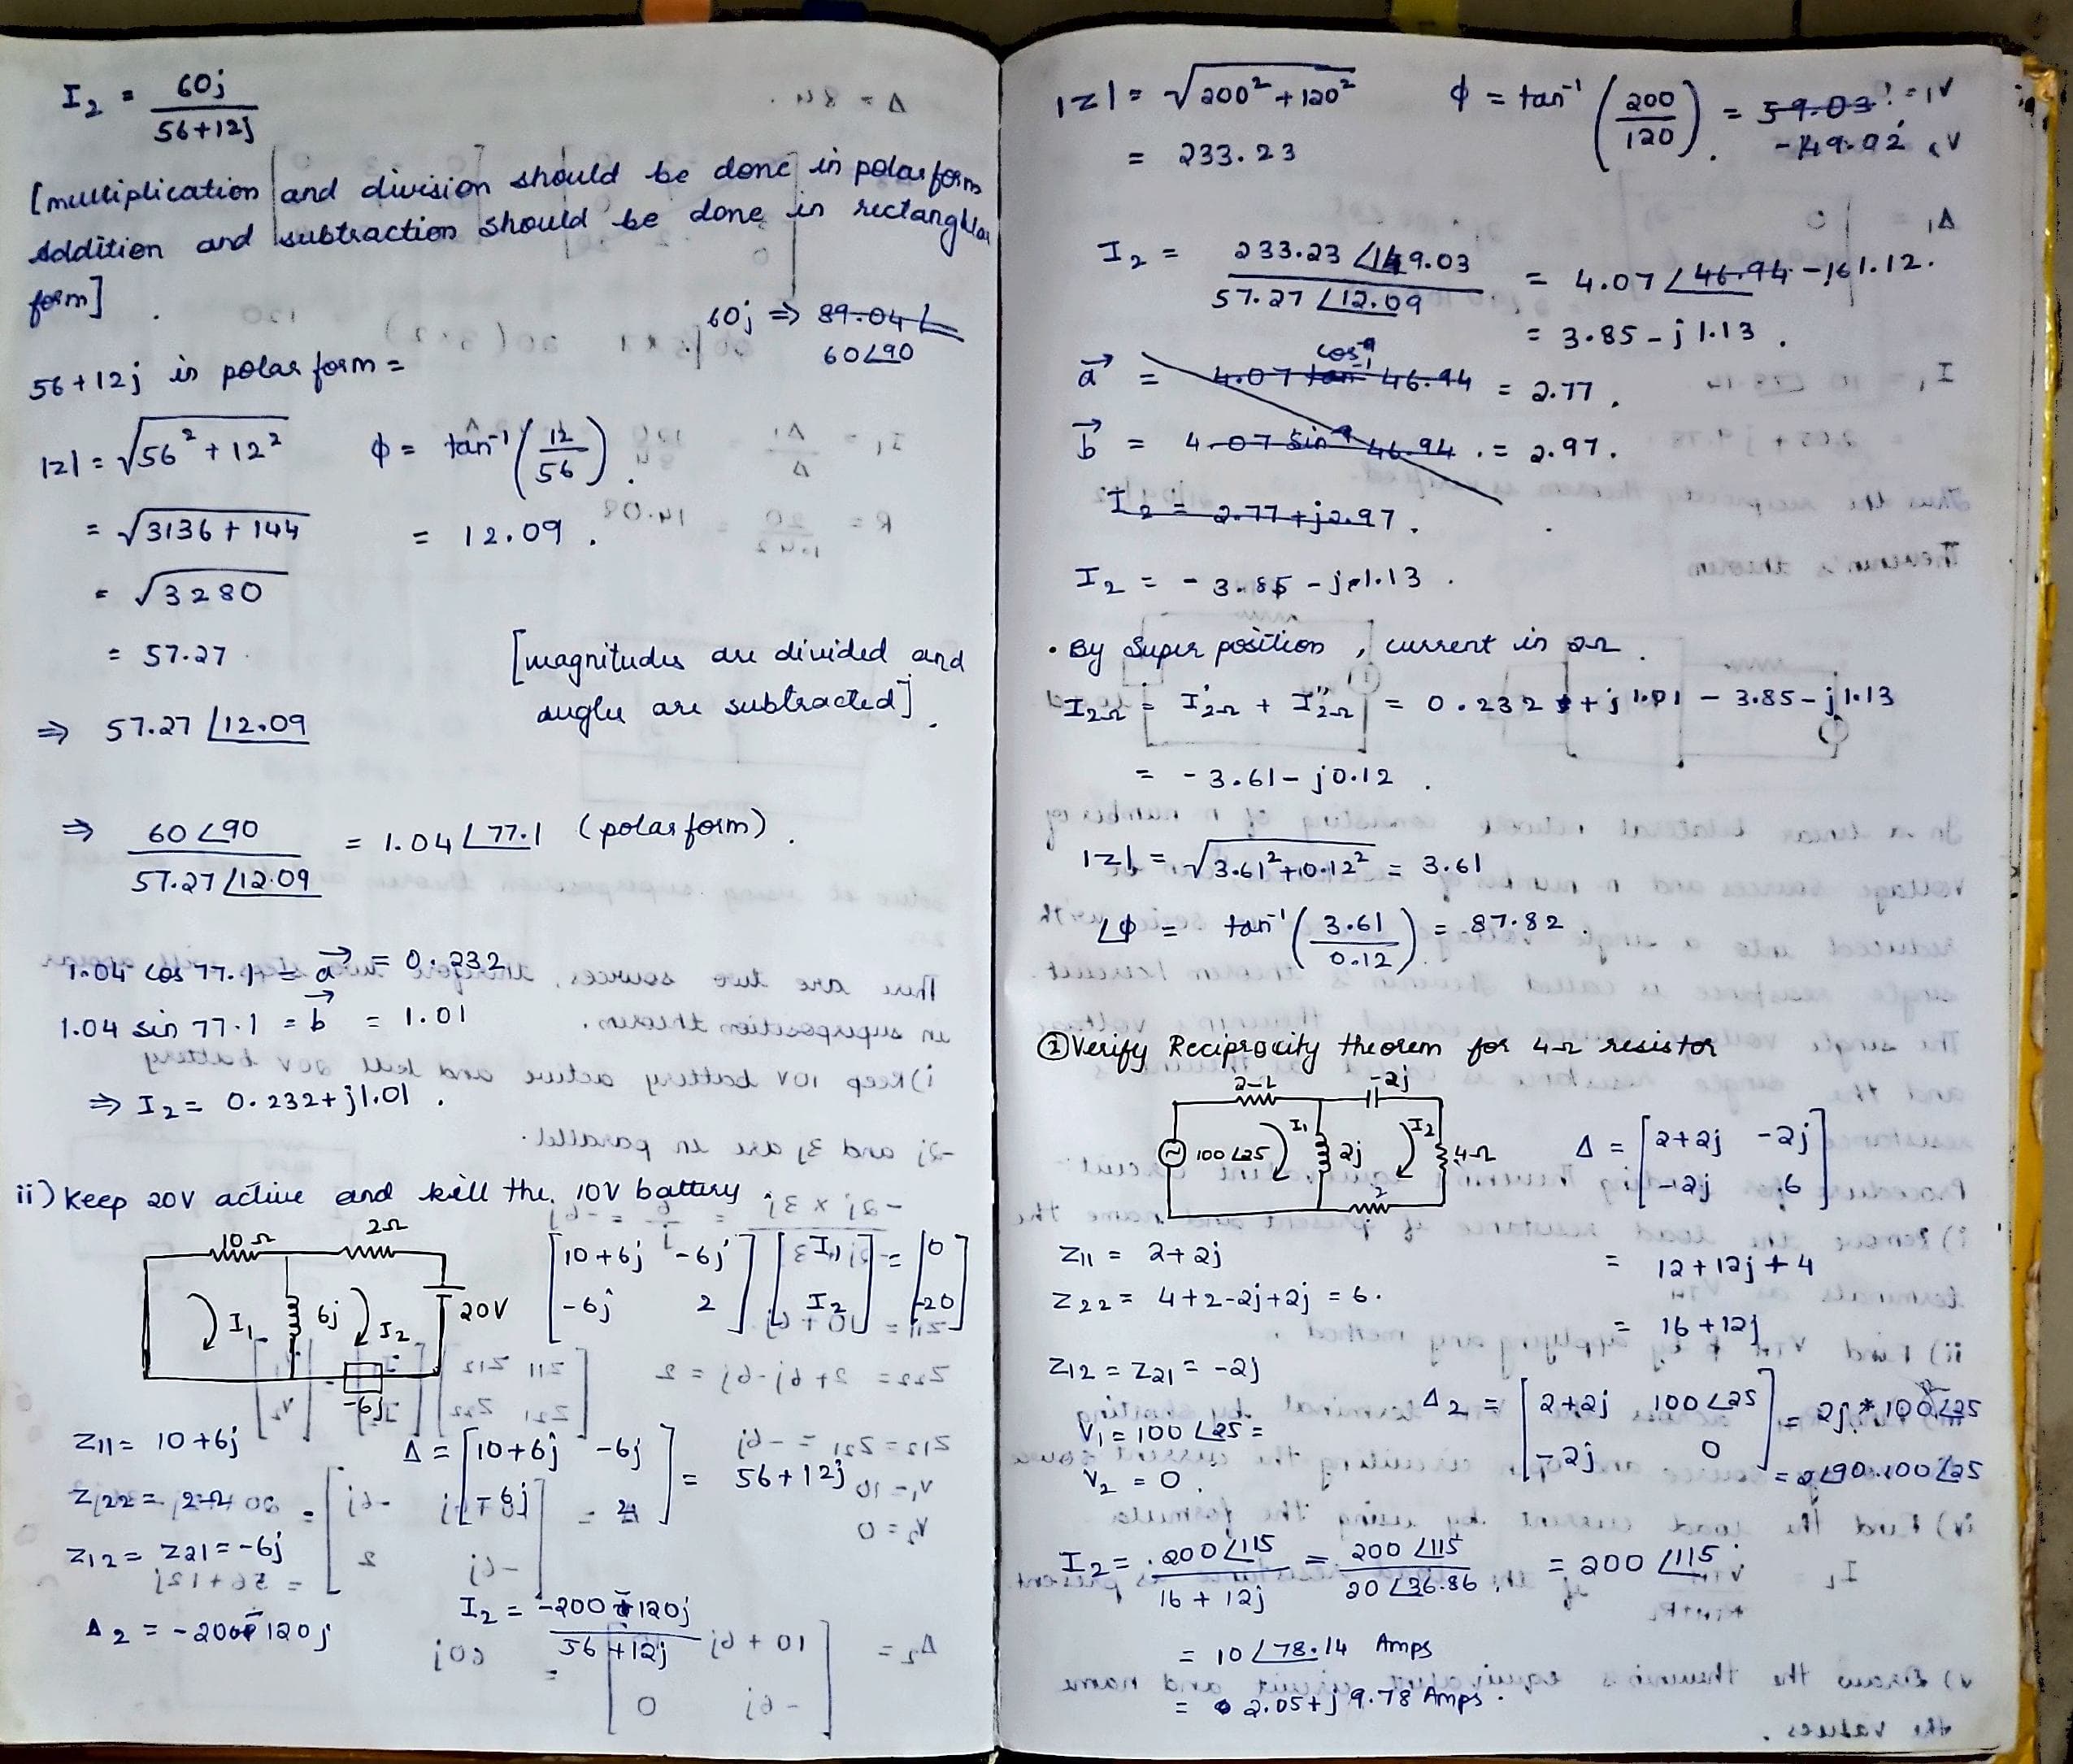 I₂ = 60j / 56+12j
[multiplication and division should be done in polar form
Addition and subtraction should be done in rectangular
form]
60j ⇒ 89.04∠
60∠90
56+12j in polar form =
|z| = √56² + 12² ϕ = tan⁻¹ (12/56)
= √3136 + 144 = 12.09 .
= √3280
= 57.27
[magnitudes are divided and
angles are subtracted]
⇒ 57.27 ∠12.09
⇒ 60∠90 / 57.27∠12.09 = 1.04 ∠77.1 (polar form) .
1.04 cos 77.1 = a = 0.232
1.04 sin 77.1 = b = 1.01
⇒ I₂ = 0.232+j1.01 .
ii) Keep 20V active and kill the 10V battery .
10Ω 2Ω
I₁ 6j I₂ 20V
-6j
[10+6j -6j / -6j 2] [I₁ / I₂] = [0 / -20]
Z11 = 10+6j Δ = [10+6j -6j / -6j 2] = 56+12j
Z22 = 2
Z12 = Z21 = -6j
Δ2 = -200-120j
I₂ = -200-120j / 56+12j
|z| = √200² + 120² ϕ = tan⁻¹ (200/120) = 59.03
-149.02
= 233.23
I₂ = 233.23 ∠149.03 / 57.27 ∠12.09 = 4.07 ∠46.94 -161.12.
= 3.85 - j 1.13 .
a = 4.07 cos 46.94 = 2.77 .
b = 4.07 sin 46.94 . = 2.97 .
I₂ = 2.77+j2.97 .
I₂ = - 3.85 - j1.13 .
. By Super position , current in 2Ω .
I2Ω = I'2Ω + I"2Ω = 0.232 + j 1.01 - 3.85 - j1.13
= - 3.61 - j0.12 .
|z| = √3.61²+0.12² = 3.61
∠ϕ = tan⁻¹ (3.61/0.12) = 87.82 .
② Verify Reciprocity theorem for 4Ω resistor
2Ω -2j
100∠25 I₁ 2j I₂ 4Ω
2
Δ = [2+2j -2j / -2j 6]
Z11 = 2+2j
= 12+12j+4
Z22 = 4+2-2j+2j = 6.
= 16+12j
Z12 = Z21 = -2j
Δ2 = [2+2j 100∠25 / -2j 0] = 2j*100∠25
V₁ = 100∠25 =
V₂ = 0 .
= 2∠90.100∠25
I₂ = 200∠115 / 16+12j = 200∠115 / 20∠36.86 = 200∠115
= 10∠78.14 Amps
= 2.05+j9.78 Amps .